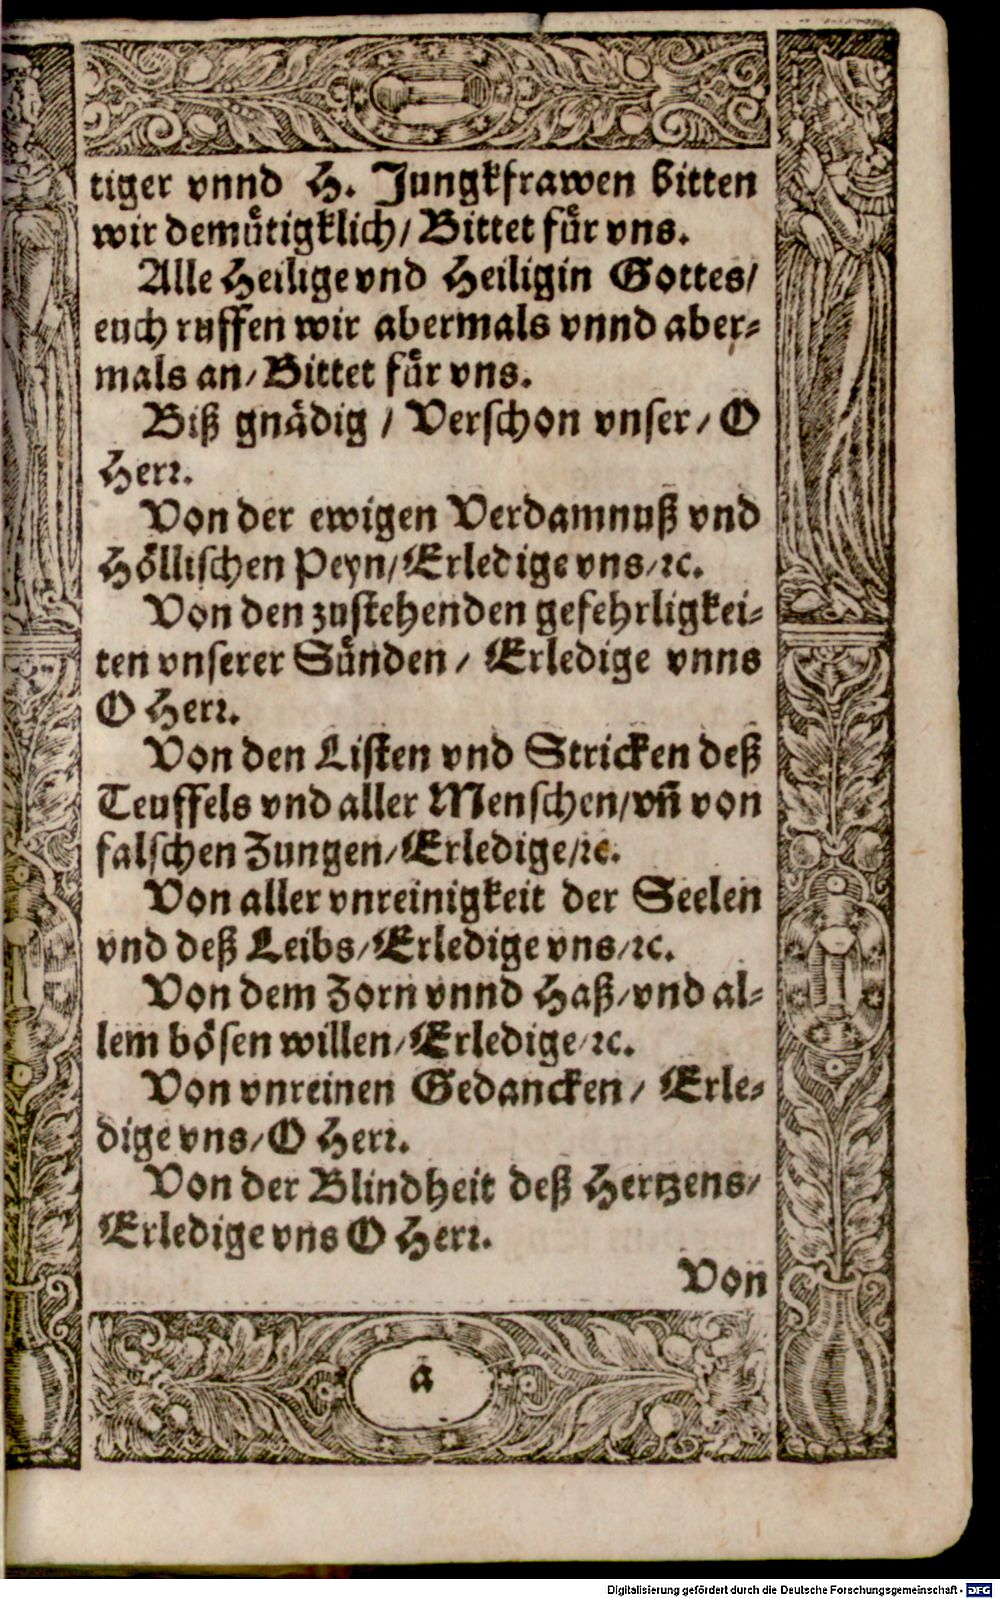 tiger vnnd H. Jungkfrawen bitten
wir demuͤtigklich/ Bittet fuͤr vns.
Alle Heilige vnd Heiligin Gottes/
euch ruffen wir abermals vnnd aber⸗
mals an/ Bittet fuͤr vns.
Biß gnaͤdig / Verschon vnser/ O
Herr.
Von der ewigen Verdamnuß vnd
Hoͤllischen Peyn/ Erledige vns/ ꝛc.
Von den zustehenden gefehrligkei⸗
ten vnserer Suͤnden/ Erledige vnns
O Herr.
Von den Listen vnd Stricken deß
Teuffels vnd aller Menschen/ vñ von
falschen Zungen/ Erledige/ ꝛc.
Von aller vnreinigkeit der Seelen
vnd deß Leibs/ Erledige vns/ ꝛc.
Von dem Zorn vnnd Haß/ vnd al⸗
lem boͤsen willen/ Erledige/ ꝛc.
Von vnreinen Gedancken/ Erle⸗
dige vns/ O Herr.
Von der Blindheit deß Hertzens/
Erledige vns O Herr.
Von
a
Digitalisierung gefördert durch die Deutsche Forschungsgemeinschaft - DFG